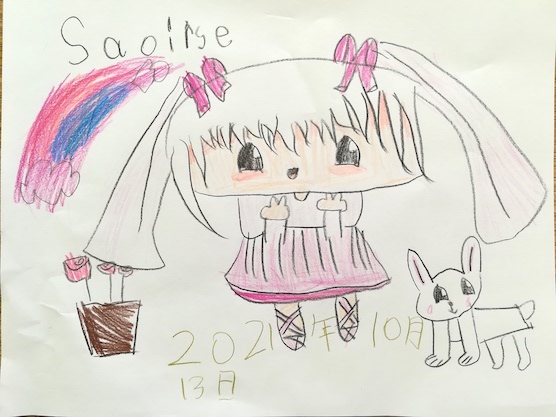 Saoirse
2021年10月
13日